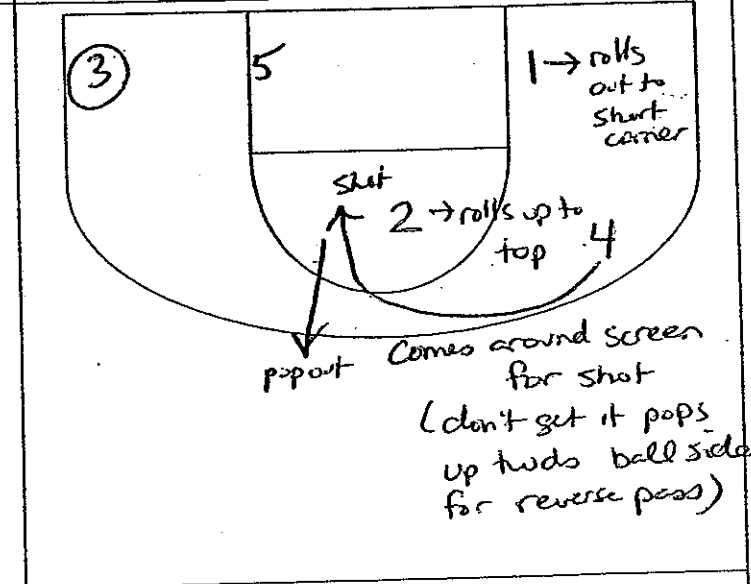 3
5
1 → rolls
out to
short
corner
shot
2 → rolls up to
top
4
pop out
Comes around screen
for shot
(don't get it pops
up twds ball side
for reverse pass)